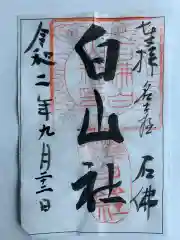 奉拝
名古屋
石佛
白山社
令和二年九月二十二日